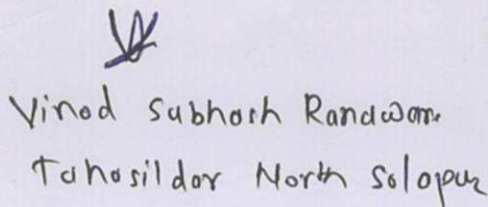 Vinod Subhash Ranawar
Tahasildar North Solapur